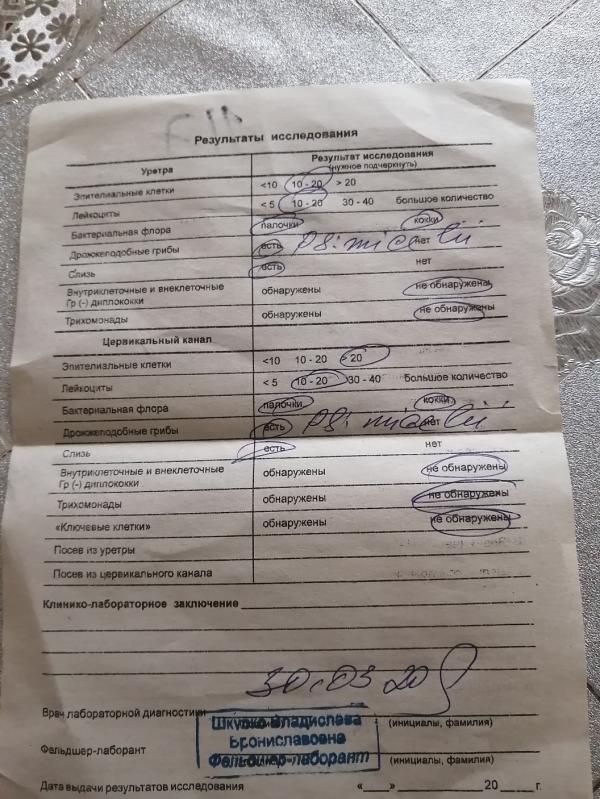 Результаты исследования
Уретра Результат исследования
(нужное подчеркнуть)
Эпителиальные клетки <10 10 - 20 > 20
Лейкоциты < 5 10 - 20 30 - 40 большое количество
Бактериальная флора палочки кокки
Дрожжеподобные грибы есть нет
Слизь есть нет
Внутриклеточные и внеклеточные обнаружены не обнаружены
Гр (-) диплококки
Трихомонады обнаружены не обнаружены
Цервикальный канал
Эпителиальные клетки <10 10 - 20 > 20
Лейкоциты < 5 10 - 20 30 - 40 Большое количество
Бактериальная флора палочки кокки
Дрожжеподобные грибы есть нет
Слизь есть нет
Внутриклеточные и внеклеточные обнаружены не обнаружены
Гр (-) диплококки
Трихомонады обнаружены не обнаружены
«Ключевые клетки» обнаружены не обнаружены
Посев из уретры
Посев из цервикального канала
Клинико-лабораторное заключение
30.03.20
Врач лабораторной диагностики (инициалы, фамилия)
Шкурко Владислава
Брониславовна
Фельдшер-лаборант
Фельдшер-лаборант (инициалы, фамилия)
Дата выдачи результатов исследования «___» 20 г.